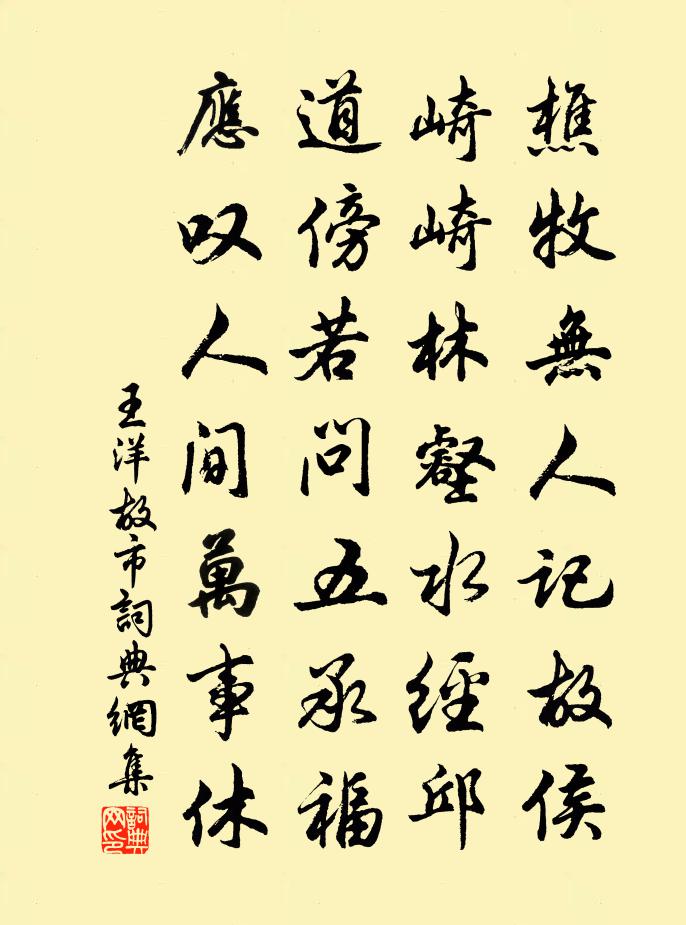 樵牧無人記故侯
崎崎林壑水經邱
道傍若問五承福
應叹人間萬事休
王洋故市詞典網集
詞典网印